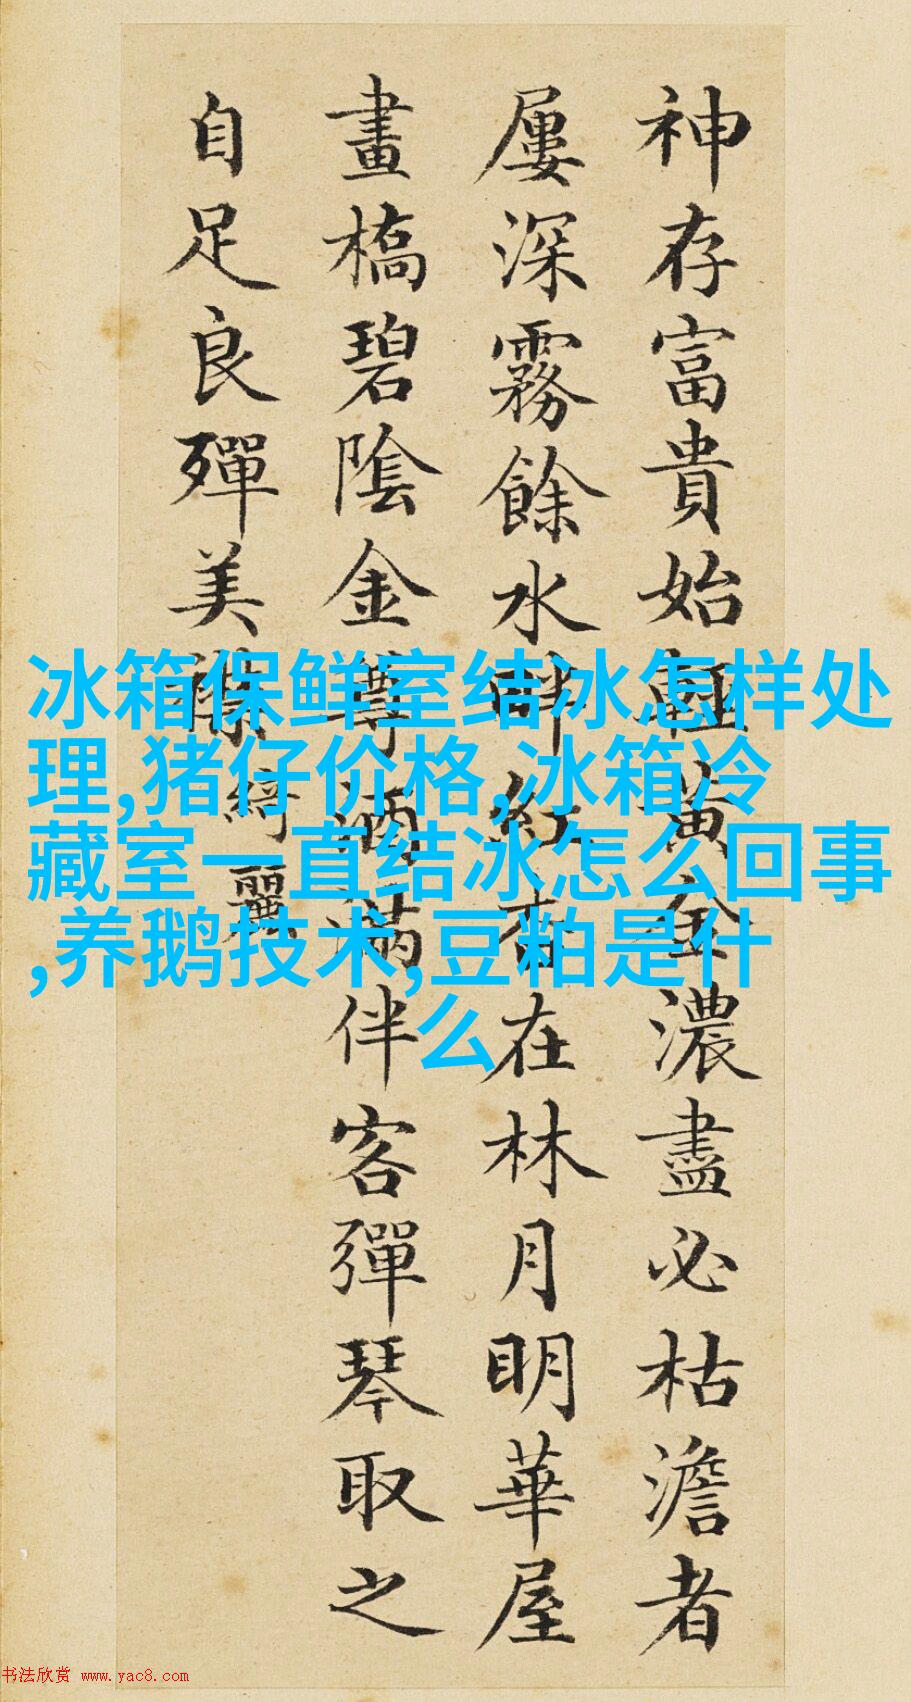 神存富貴始輕黃金濃盡必枯澹者
屢深霧餘水畔紅杏在林月明華屋
畫橋碧陰金尊酒滿伴客彈琴取之
自足良殫美襟綺麗
冰箱保鲜室结冰怎样处
理,猪仔价格,冰箱冷
藏室一直结冰怎么回事
,养鹅技术,豆粕是什
么
书法欣赏 www.yac8.com